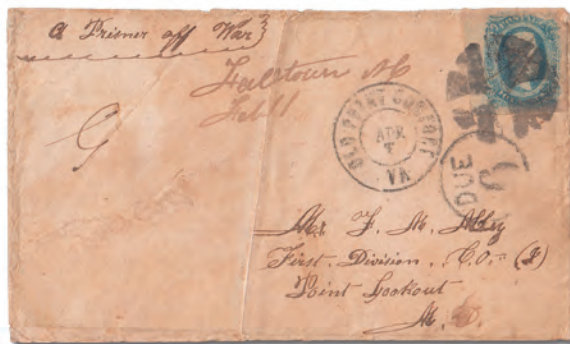 a Prisner off War
Falltown NC
Feb 11
OLD POINT COMFORT
APR
7
VA
DUE
3
Mr F. M.
First. Division. C.O. = (I)
Point Lookout
M. D.